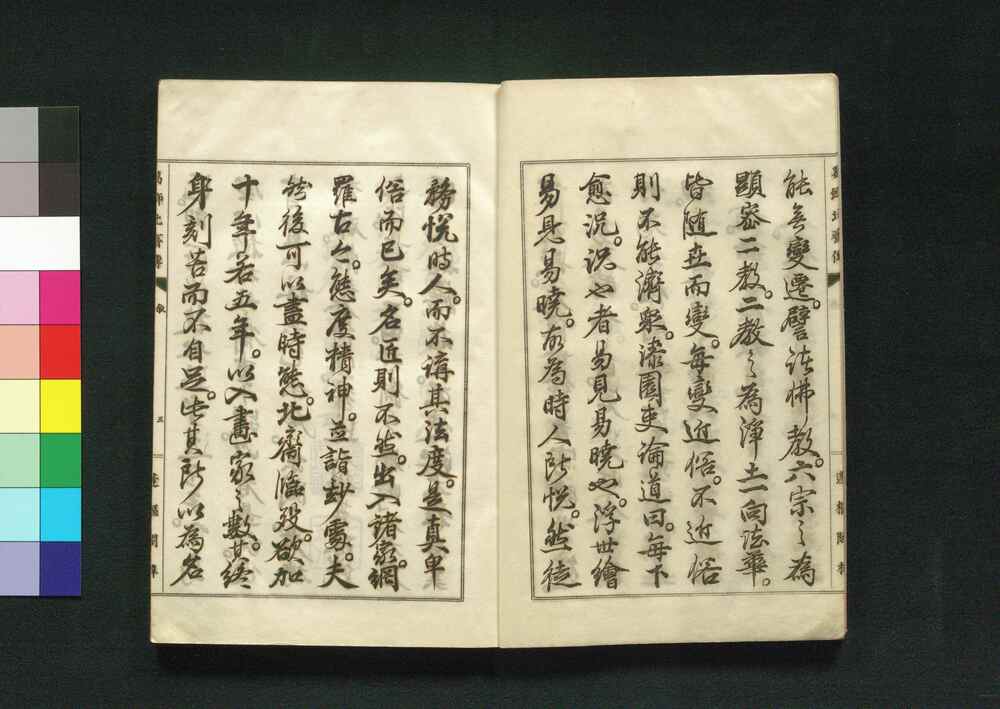 能無變遷。譬諸佛教。六宗之為
顯密二教。二教之為淨土一向法華。
皆随世而變。每變近俗。不近俗
則不能濟衆。漆園吏論道曰。每下
愈況。況也者易見易曉也。浮世繪
易見易曉。故為時人所悦。然徒
務悦時人。而不講其法度。是真卑
俗而已矣。名匠則不然。出入諸家。網
羅古今。態度精神。並詣妙處。夫
然後可以盡時態。北齋臨歿。欲加
十年若五年。以入畫家之數。其終
身刻苦而不自足。此其所以為名
葛飾北齋傳
叙
三